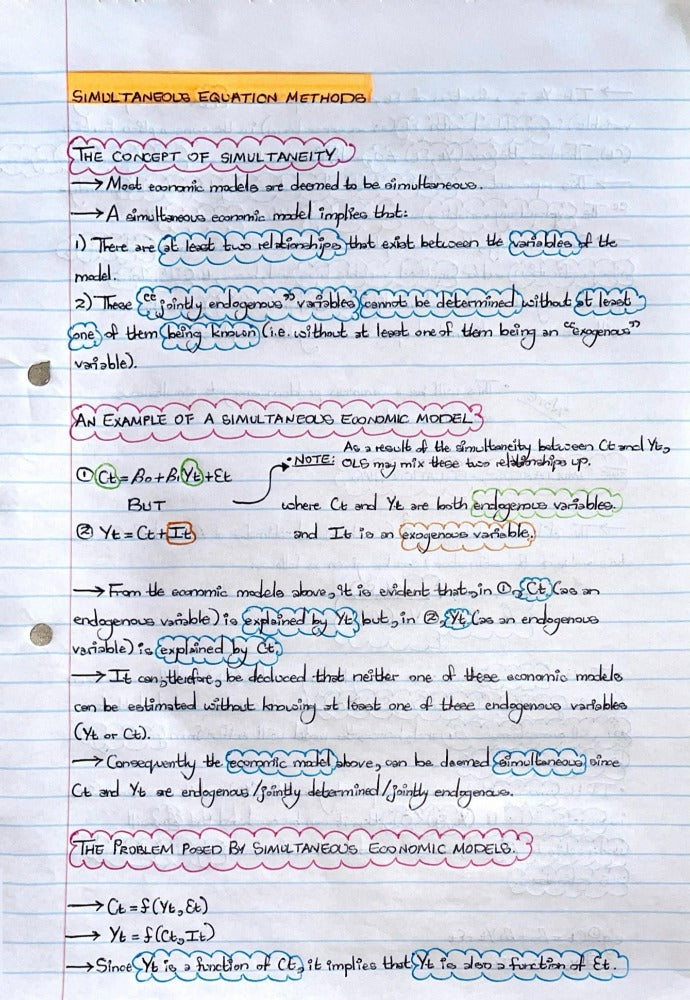 SIMULTANEOUS EQUATION METHODS
THE CONCEPT OF SIMULTANEITY
→ Most economic models are deemed to be simultaneous.
→ A simultaneous economic model implies that:
1) There are at least two relationships that exist between the variables of the
model.
2) These "jointly endogenous" variables cannot be determined without at least
one of them being known (i.e. without at least one of them being an "exogenous"
variable).
AN EXAMPLE OF A SIMULTANEOUS ECONOMIC MODEL
① Ct = β0 + β1Yt + Ɛt
BUT
② Yt = Ct + It
• NOTE: As a result of the simultaneity between Ct and Yt,
OLS may mix these two relationships up.
where Ct and Yt are both endogenous variables.
and It is an exogenous variable.
→ From the economic models above, it is evident that, in ①, Ct (as an
endogenous variable) is explained by Yt but, in ②, Yt (as an endogenous
variable) is explained by Ct.
→ It can, therefore, be deduced that neither one of these economic models
can be estimated without knowing at least one of these endogenous variables
(Yt or Ct).
→ Consequently the economic model above, can be deemed simultaneous since
Ct and Yt are endogenous/jointly determined/jointly endogenous.
THE PROBLEM POSED BY SIMULTANEOUS ECONOMIC MODELS.
→ Ct = f(Yt, Ɛt)
→ Yt = f(Ct, It)
→ Since Yt is a function of Ct, it implies that Yt is also a function of Ɛt.